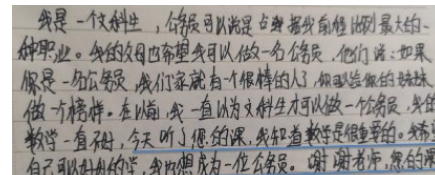 我是一个文科生，公务员可以说是占据我前程比例最大的一
种职业。我的父母也希望我可以做一名公务员，他们说：如果
你是一名公务员，我们家就有个很棒的人了，你可以给你的妹妹
做一个榜样。在以前，我一直以为文科生才可以做一个公务员，我的
数学一直不好，今天听了您的课，我知道数学是很重要的。我
自己可以好好的学，我也想成为一位公务员。谢谢老师，您的课